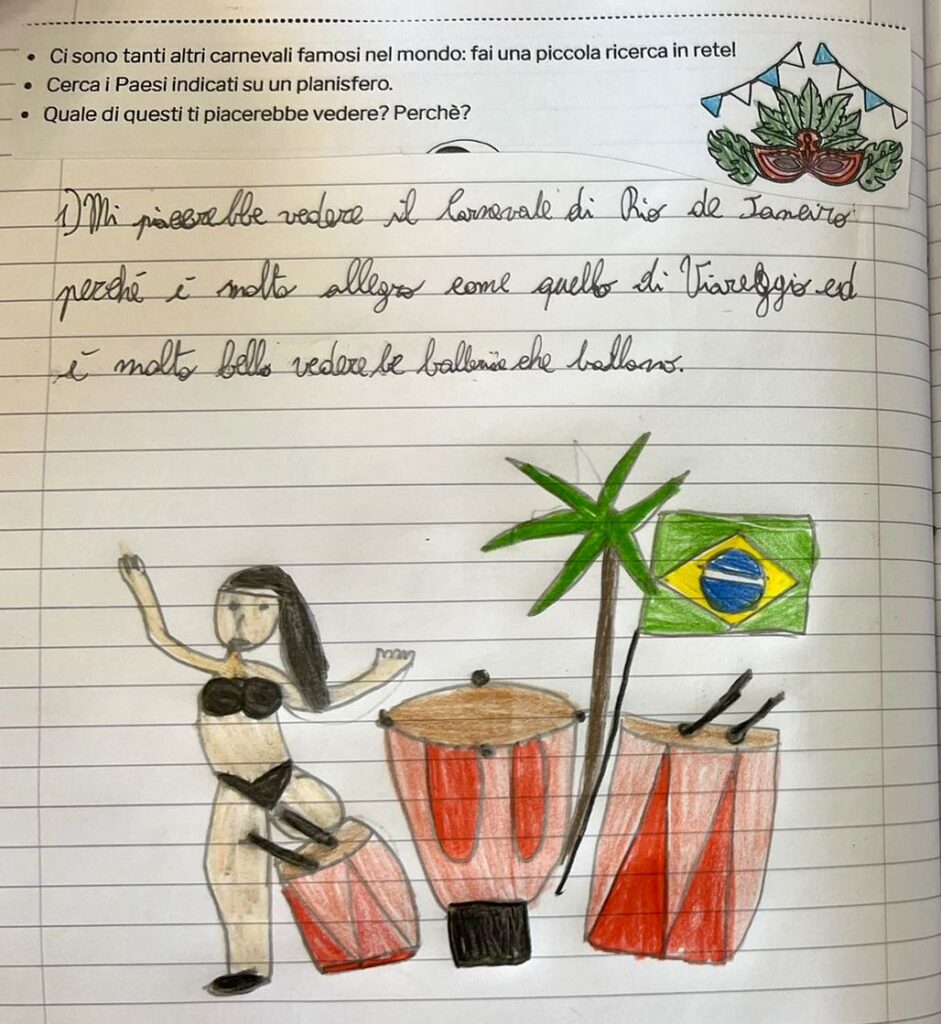 Ci sono tanti altri carnevali famosi nel mondo: fai una piccola ricerca in rete!
Cerca i Paesi indicati su un planisfero.
Quale di questi ti piacerebbe vedere? Perchè?
1) Mi piacerebbe vedere il Carnevale di Rio de Janeiro
perché è molto allegro come quello di Viareggio ed
è molto bello vedere le ballerine che ballano.